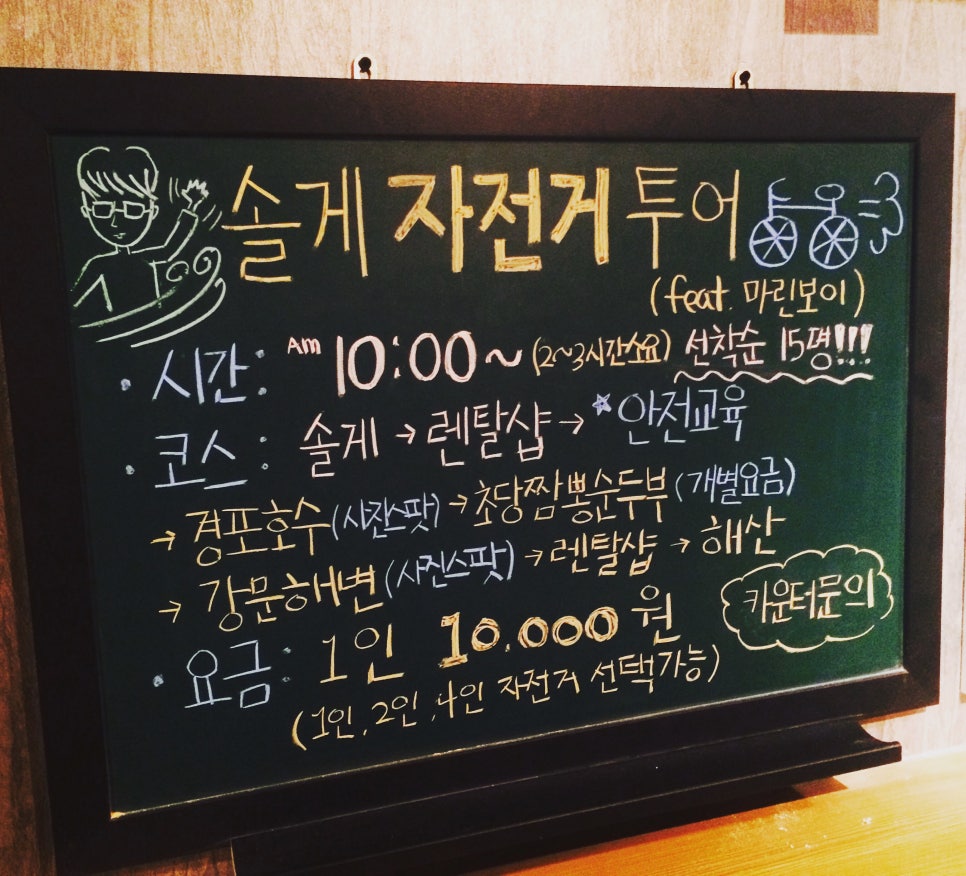 솔게 자전거 투어
(feat. 마린보이)
· 시간: Am 10:00~ (2~3시간소요) 선착순 15명!!!
· 코스: 솔게 → 렌탈샵 → *안전교육
→ 경포호수(사진스팟) → 초당짬뽕순두부(개별요금)
→ 강문해변(사진스팟) → 렌탈샵 → 해산
카운터문의
· 요금: 1인 10.000원
(1인, 2인, 4인 자전거 선택가능)